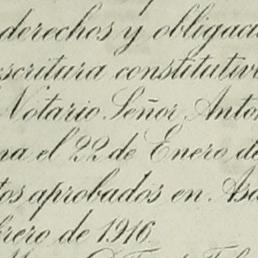 derechos y obligaci
scritura constitutiv
Notario Señor Anto
na el 22 de Enero de
tos aprobados en Asa
brero de 1916